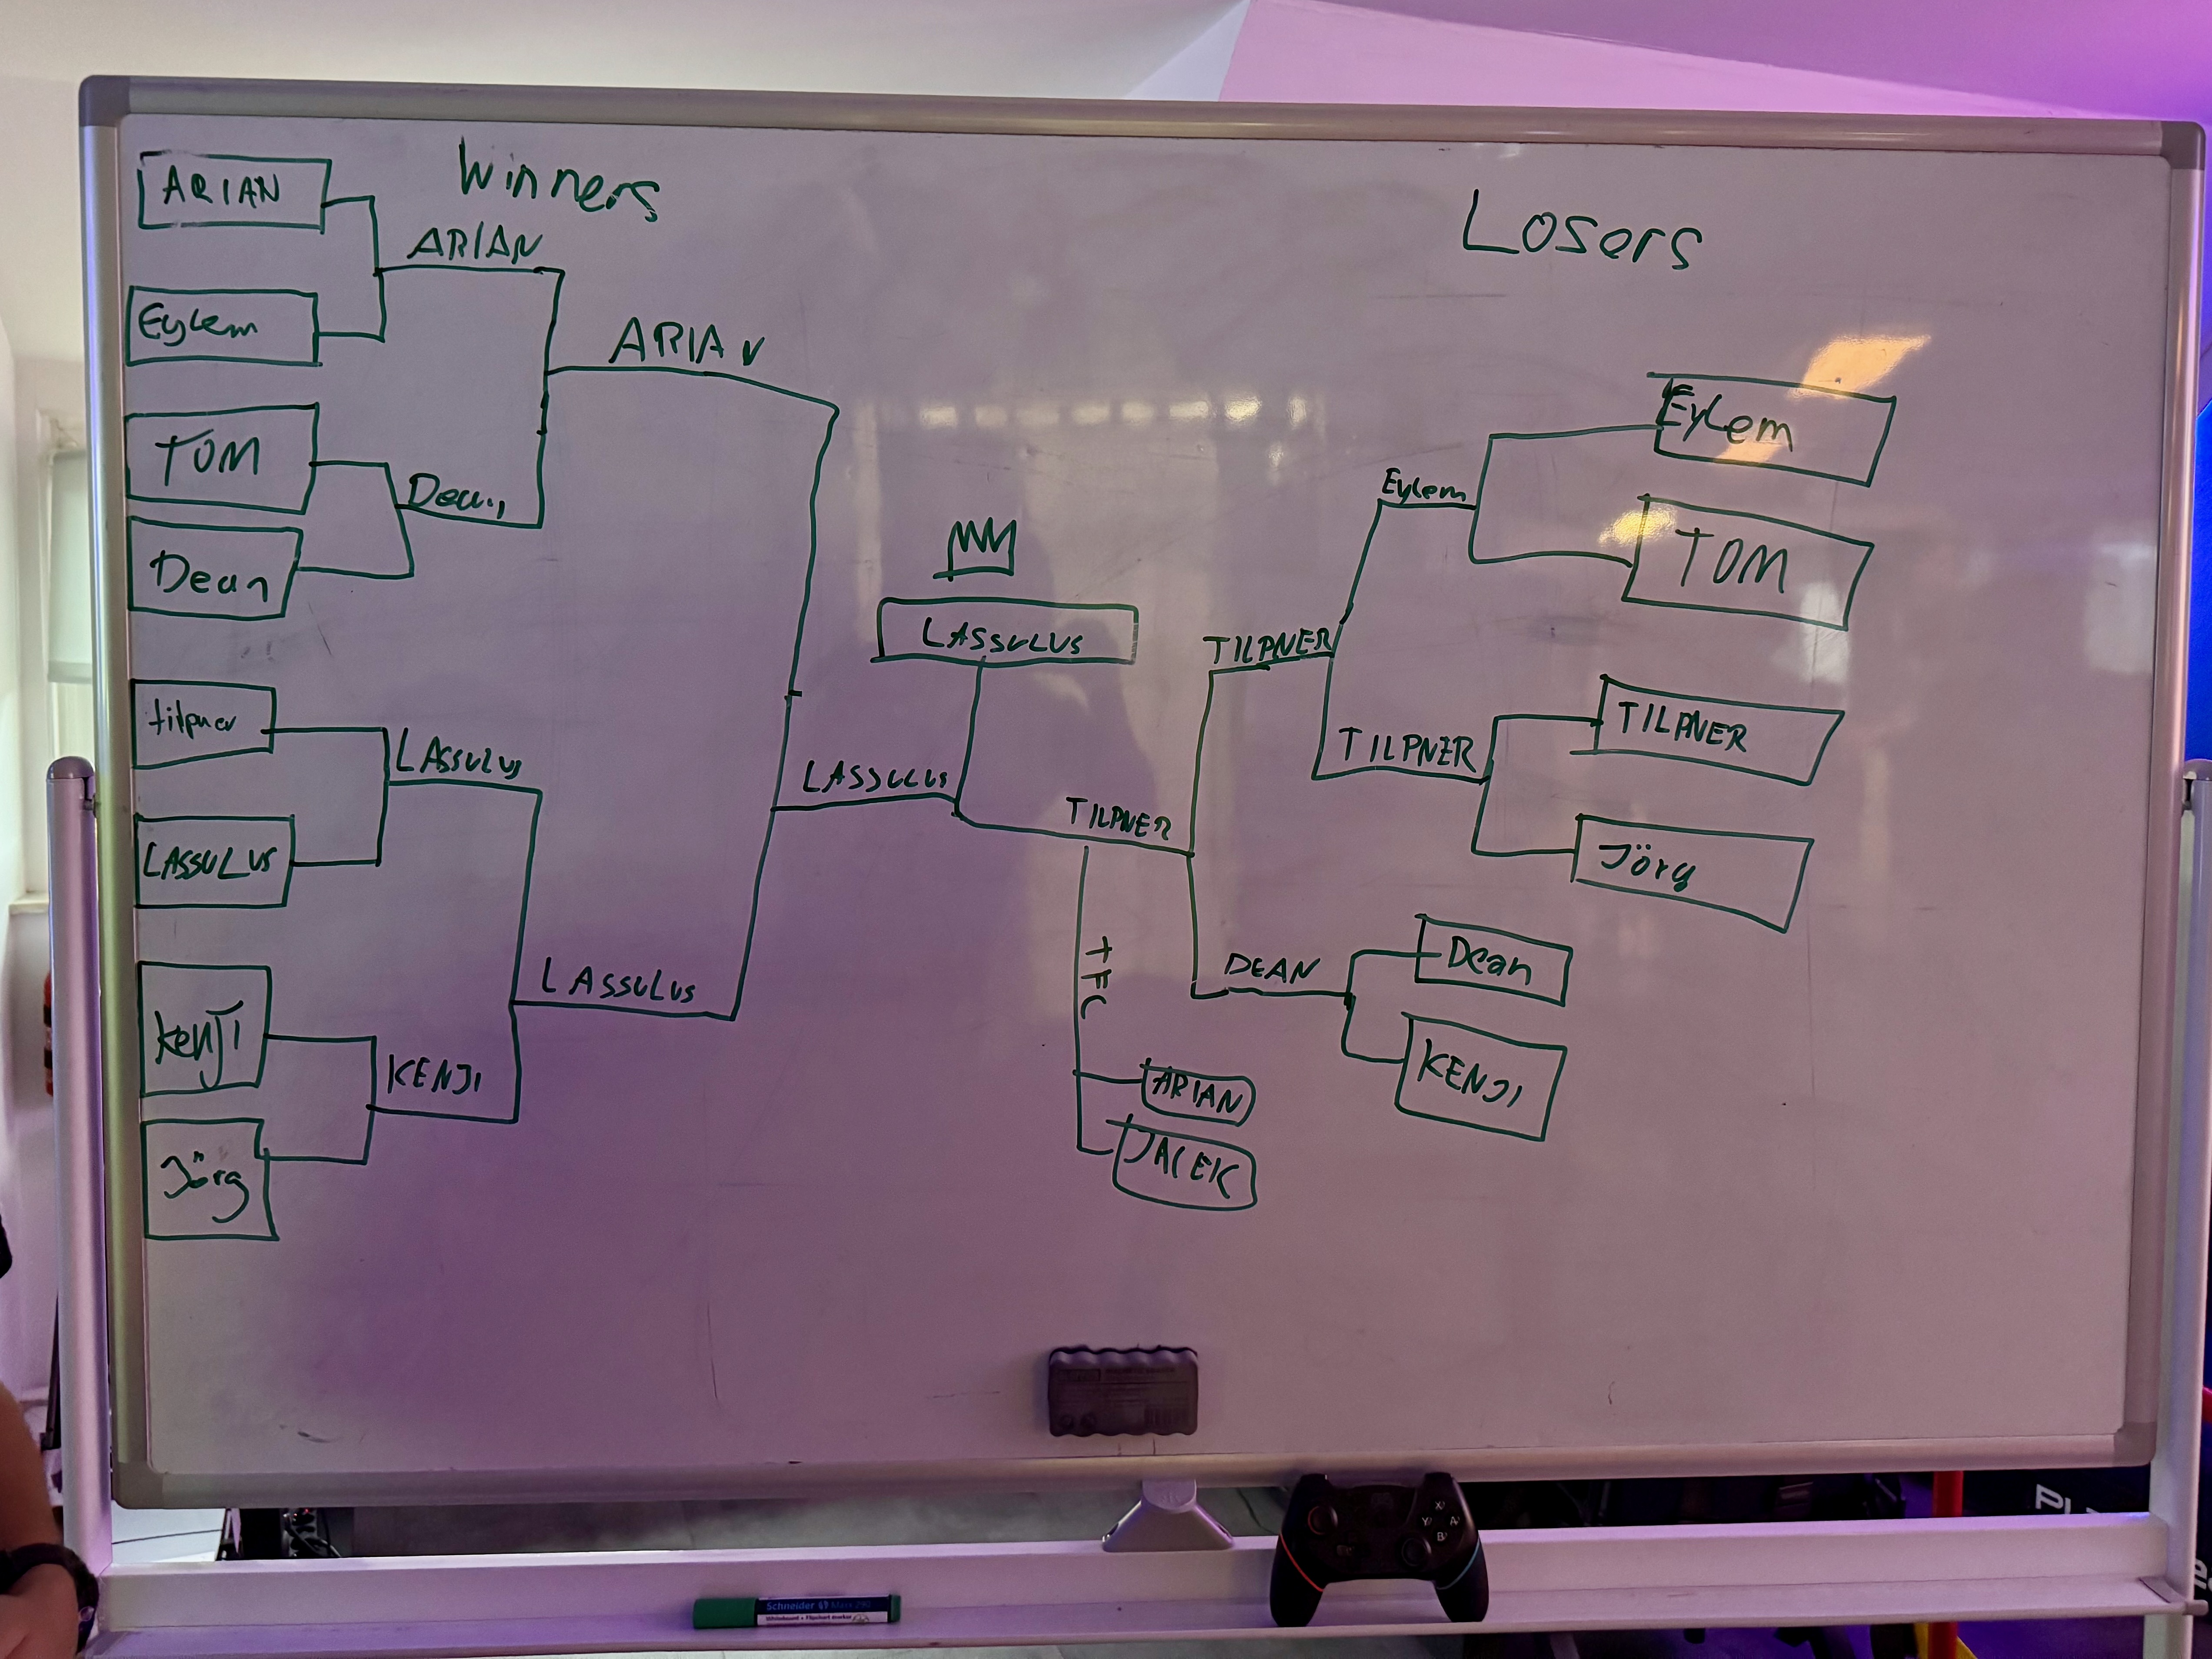 Winners
ARIAN
Eylem
TOM
Dean
tilpner
LASSULUS
KenJI
Jörg
ARIAN
Dean
LASSULUS
KENJI
ARIAN
LASSULUS
LASSULUS
LASSULUS
Losers
Eylem
TOM
TILPNER
Jörg
Dean
KENJI
Eylem
TILPNER
TILPNER
DEAN
TILPNER
TFC
ARIAN
JACEK
X
Y
A
B
Schneider Maxx 290